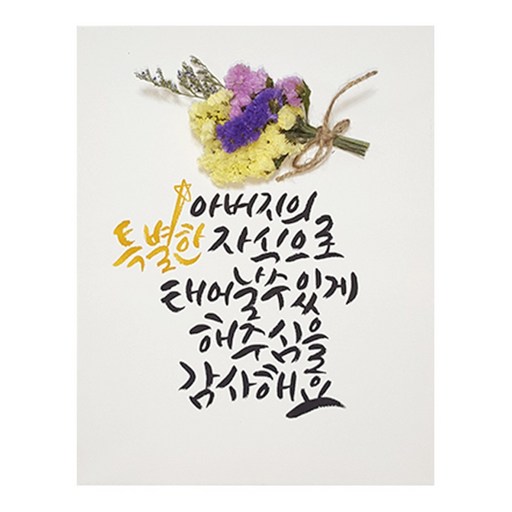 아버지의
특별한 자식으로
태어날수있게
해주심을
감사해요